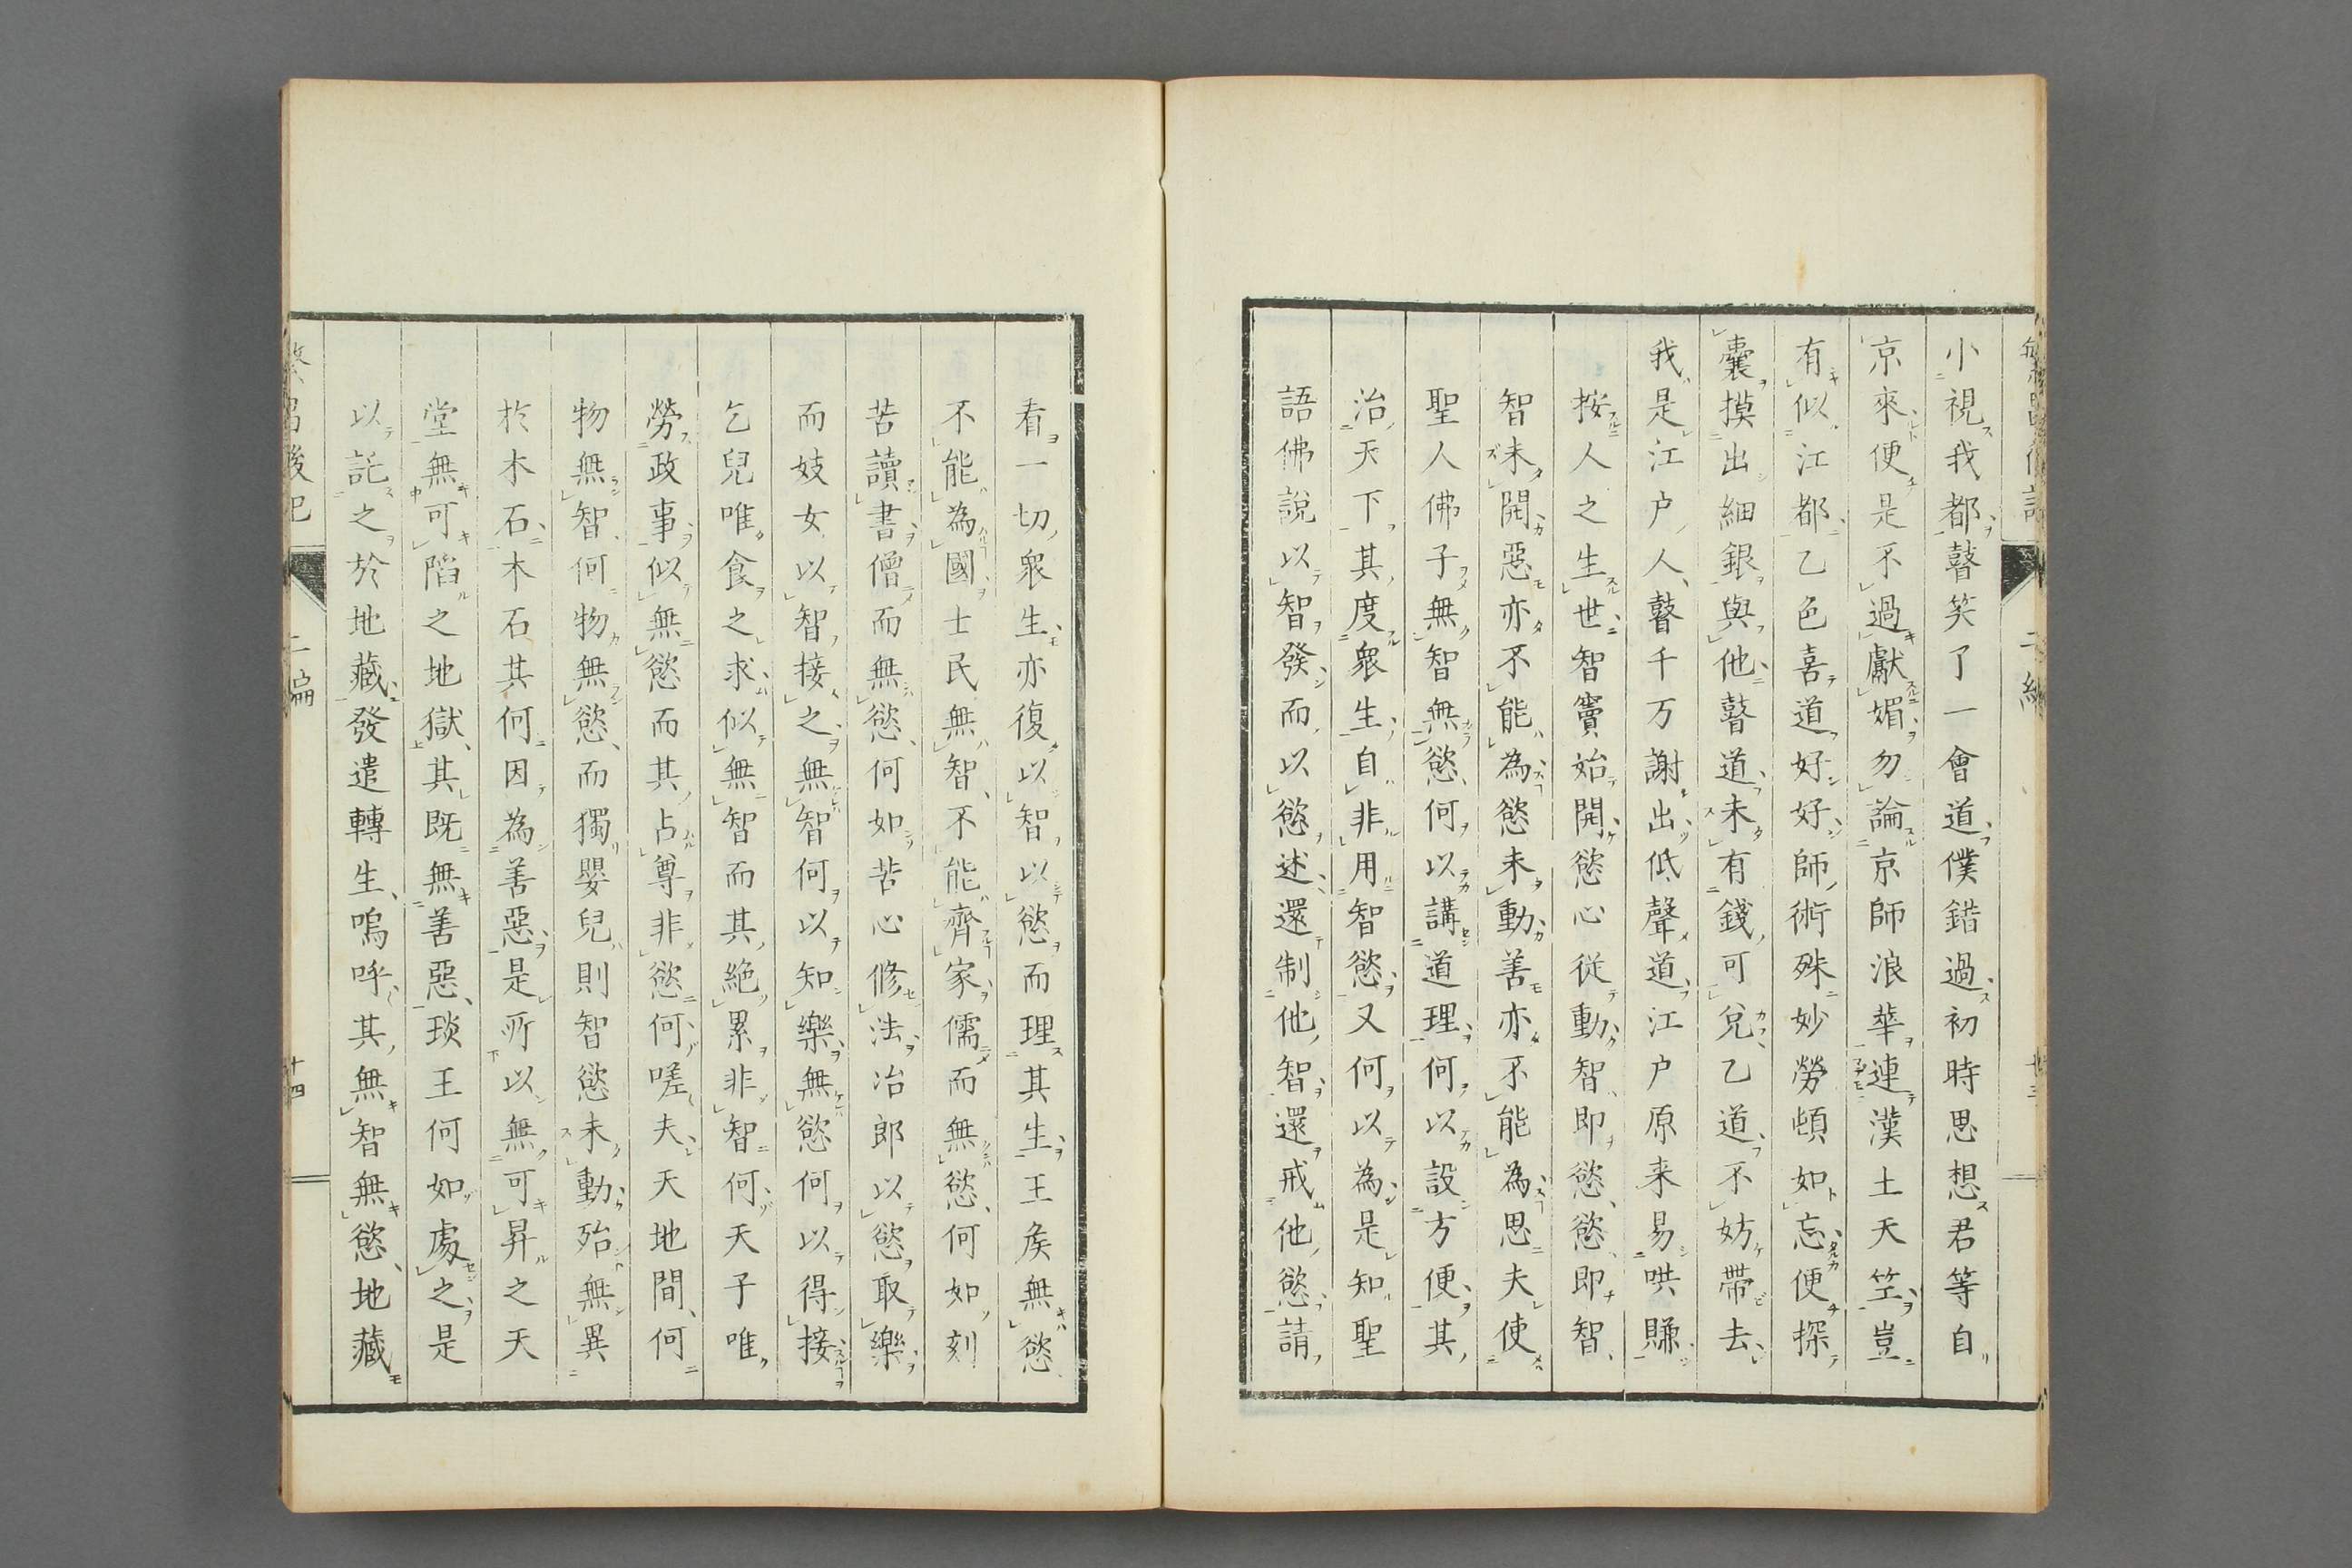 小視我都瞽笑了一會道僕錯過初時思想君等自
京來便是不過獻媚勿論京師浪華連漢土天竺豈
有似江都乙色喜道好好師術殊妙勞頓如忘便探
囊摸出細銀與他瞽道未有錢可兌乙道不妨帶去
我是江戸人瞽千万謝出低聲道江戸原来易哄賺
按人之生世智竇始開慾心從動智即慾慾即智
智未開惡亦不能為慾未動善亦不能為思夫使
聖人佛子無智無慾何以講道理何以設方便其
治天下其度衆生自非用智慾又何以為是知聖
語佛說以智發而以慾述還制他智還戒他慾請
看一切衆生亦復以智以慾而理其生王矦無慾
不能為國士民無智不能齊家儒而無慾何如刻
苦讀書僧而無慾何如苦心修法冶郎以慾取樂
而妓女以智接之無智何以知樂無慾何以得接
乞兒唯食之求似無智而其絶累非智何天子唯
勞政事似無慾而其占尊非慾何嗟夫天地間何
物無智何物無慾而獨嬰兒則智慾未動殆無異
於木石木石其何因為善惡是所以無可昇之天
堂無可陷之地獄其既無善惡琰王何如處之是
以託之於地藏發遣轉生嗚呼其無智無慾地藏
二編
十四